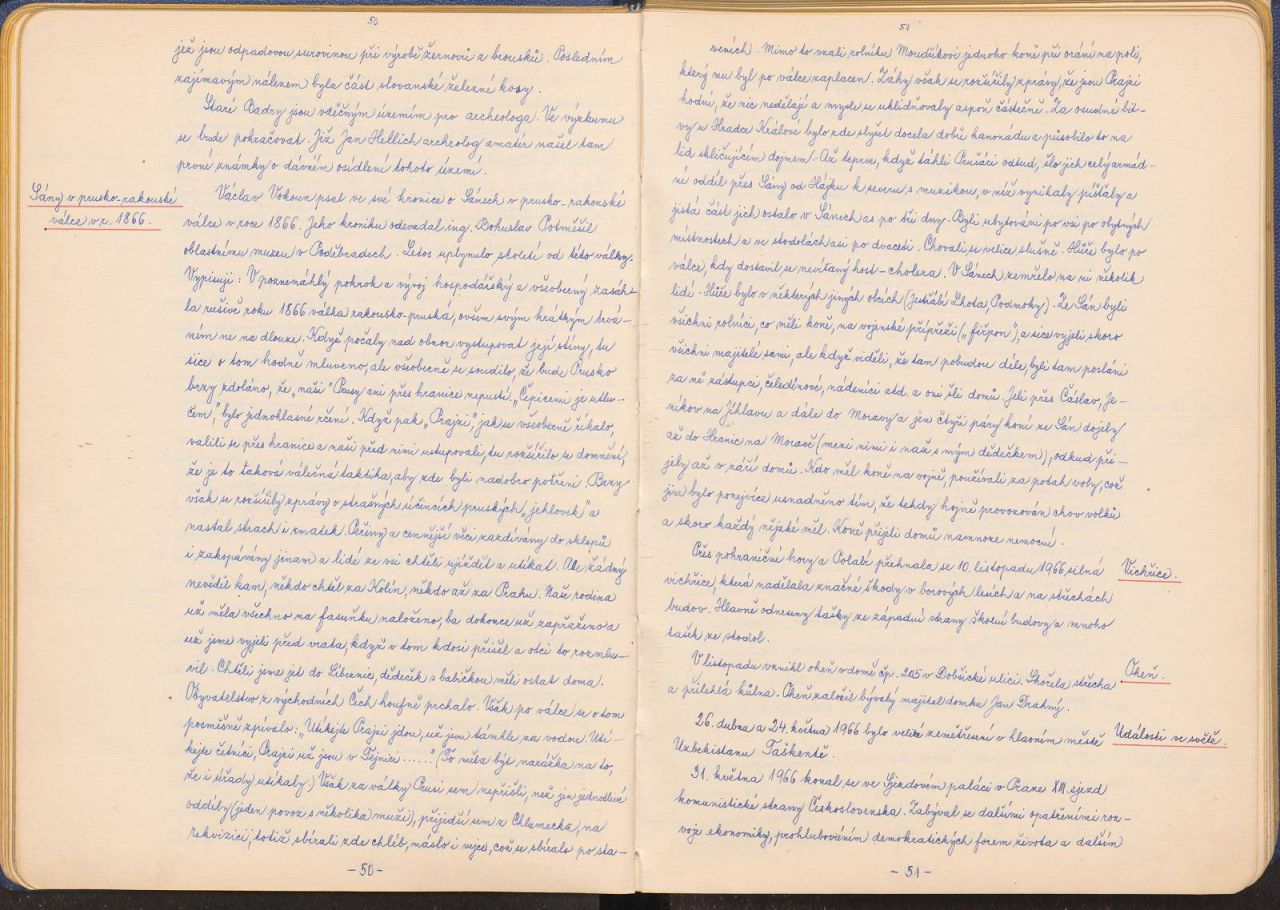 50
jež jsou odpadovou surovinou při výrobě žernovů a brousků. Posledním
zajímavým nálezem byla část slovanské železné kosy.
Staré Badry jsou vděčným územím pro archeologa. Ve výzkumu
se bude pokračovat. Již Jan Hellich archeolog amatér našel tam
první známky o dávném osídlení tohoto území.
Sány v prusko-rakouské
válce v r. 1866.
Václav Vokoun psal ve své kronice o Sánech v prusko-rakouské
válce v roce 1866. Jeho kroniku odevzdal ing. Bohuslav Potměšil
oblastnímu muzeu v Poděbradech. Letos uplynulo století od této války.
Vypisuji: V pozvenáhlý pokrok a vývoj hospodářský a všeobecný zasáh-
la rušivě roku 1866 válka rakousko-pruská, ovšem svým krátkým trvá-
ním ne na dlouze. Když počaly nad obzor vystupovat její stíny, tu
sice o tom hodně mluveno, ale všeobecně se soudilo, že bude Prusko
brzy zdoláno, že "naši" Prusy ani přes hranice nepustí. "Čepicemi je utlu-
čem," bylo jednohlasné rčení. Když pak "Prajzi", jak se všeobecně říkalo,
valili se přes hranice a naši před nimi ustupovali, tu rozšířilo se domnění,
že je to taková válečná taktika, aby zde byli nadobro potřeni. Brzy
však se rozšířily zprávy o strašných účincích pruských "jehlovek" a
nastal strach i zmatek. Peřiny a cennější věci zazdívány do sklepů
i zakopávány jinam a lidé ze vsi chtěli ujíždět a utíkat. Ale žádný
nevěděl kam, někdo chtěl za Kolín, někdo až za Prahu. Naše rodina
už měla všechno na fasuňku naloženo, ba dokonce už zapřaženo a
už jsme vyjeli před vrata, když v tom kdosi přišel a otci to rozmlu-
vil. Chtěli jsme jet do Libenic, dědeček s babičkou měli ostat doma.
Obyvatelstvo z východních Čech houfně prchalo. Však po válce se o tom
posměšně zpívalo: "Utíkejte Prajzi jdou, už jsou támhle za vodou. Utí-
kejte četníci, Prajzi už jsou v Tejnici......" (To měla být narážka na to,
že i úřady utíkaly.) Však za války Prusi sem nepřišli, než jen jednotlivé
oddíly (jeden povoz s několika muži), přijedší sem z Chlumecka, na
rekvizici, totiž sbírali zde chléb, máslo i vejce, což se sbíralo po sta-
- 50 -
51
veních. Mimo to vzali rolníku Moudříkovi jednoho koně při orání na poli,
který mu byl po válce zaplacen. Záhy však se rozšířily zprávy, že jsou Prajzi
hodní, že nic nedělají a mysle se uklidňovaly aspoň částečně. Za osudné bit-
vy u Hradce Králové bylo zde slyšet docela dobře kanonádu a působilo to na
lid skličujícím dojmem. Až teprve, když táhli Prušáci odtud, šlo jich celý armád-
ní oddíl přes Sány od Hájku k severu s muzikou, v níž vynikaly píšťaly a
jistá část jich ostalo v Sánech as po tři dny. Byli ubytováni po vsi po obytných
místnostech a ve stodolách asi po dvaceti. Chovali se velice slušně. Hůře bylo po
válce, kdy dostavil se nevítaný host - cholera. V Sánech zemřelo na ni několik
lidí. Hůře bylo v některých jiných obcích (Jestřabí Lhota, Podmoky). Ze Sán byli
všichni rolníci, co měli koně, na vojenské přípřeži ("firpon"), a sice vyjeli skoro
všichni majitelé sami, ale když viděli, že tam pobudou déle, byli tam posláni
za ně zástupci, čeledínové, nádeníci atd. a oni šli domů. Jeli přes Čáslav, Je-
níkov na Jihlavu a dále do Moravy a jen čtyři páry koní ze Sán dojely
až do Hranic na Moravě (mezi nimi i naše s mým dědečkem), odkud při-
jely až v září domů. Kdo měl koně na vojně, používali za potah voly, což
jim bylo ponejvíce usnadněno tím, že tehdy hojně provozován chov volků
a skoro každý nějaké měl. Koně přijeli domů namnoze nemocní.
Přes pohraniční hory a Polabí přehnala se 10. listopadu 1966 silná
Vichřice.
vichřice, která nadělala značné škody v borových lesích a na střechách
budov. Hlavně odneseny tašky ze západní strany školní budovy a mnoho
tašk ze stodol.
V listopadu vznikl oheň v domě čp. 205 v Dobšické ulici. Shořela střecha
Oheň.
a přilehlá kůlna. Oheň založil bývalý majitel domku Jan Drahný.
26. dubna a 24. května 1966 bylo veliké zemětřesení v hlavním městě
Události ve světě.
Uzbekistanu Taškentě.
31. května 1966 konal se ve Sjezdovém paláci v Praze XIII. sjezd
komunistické strany Československa. Zabýval se dalšími opatřeními roz-
voje ekonomiky, prohlubováním demokratických forem života a dalším
- 51 -